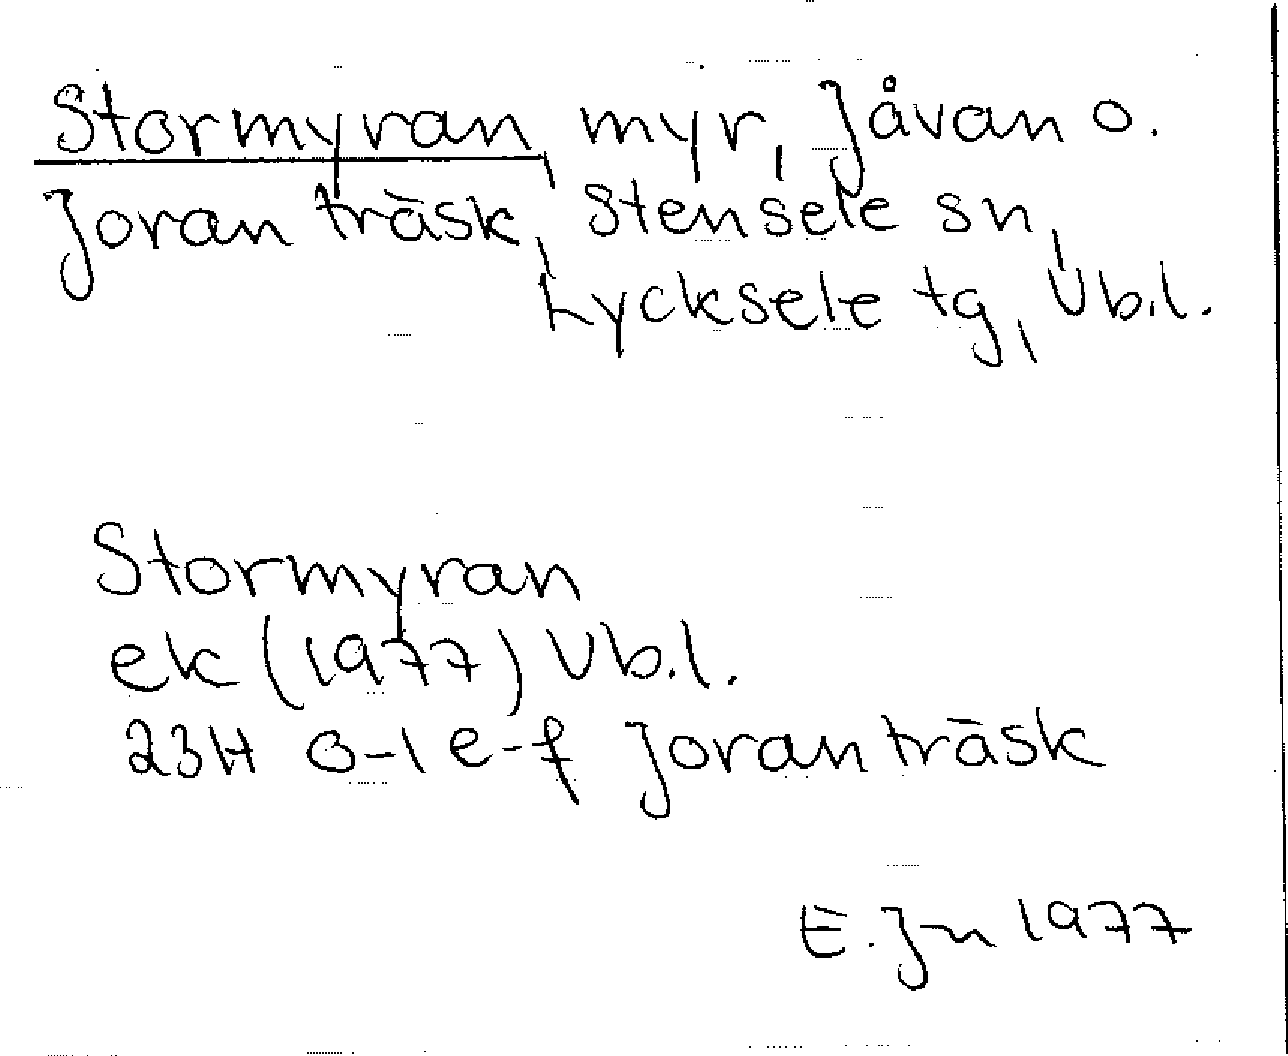 Stormyran, myr, Jåvan o.
Joranträsk, Stensele sn,
Lycksele tg, Vb.l.
Stormyran
ek (1977) Vb.l.
23H 0-1 e-f Joranträsk
E. Jn 1977